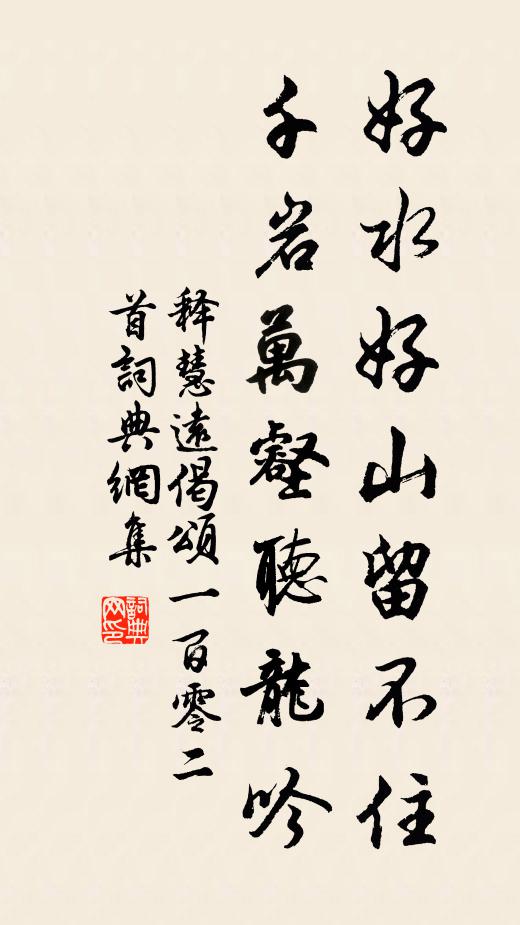 好水好山留不住
千岩萬壑聽龍吟
释慧遠偈頌一百零二
首詞典網集
詞典
网印